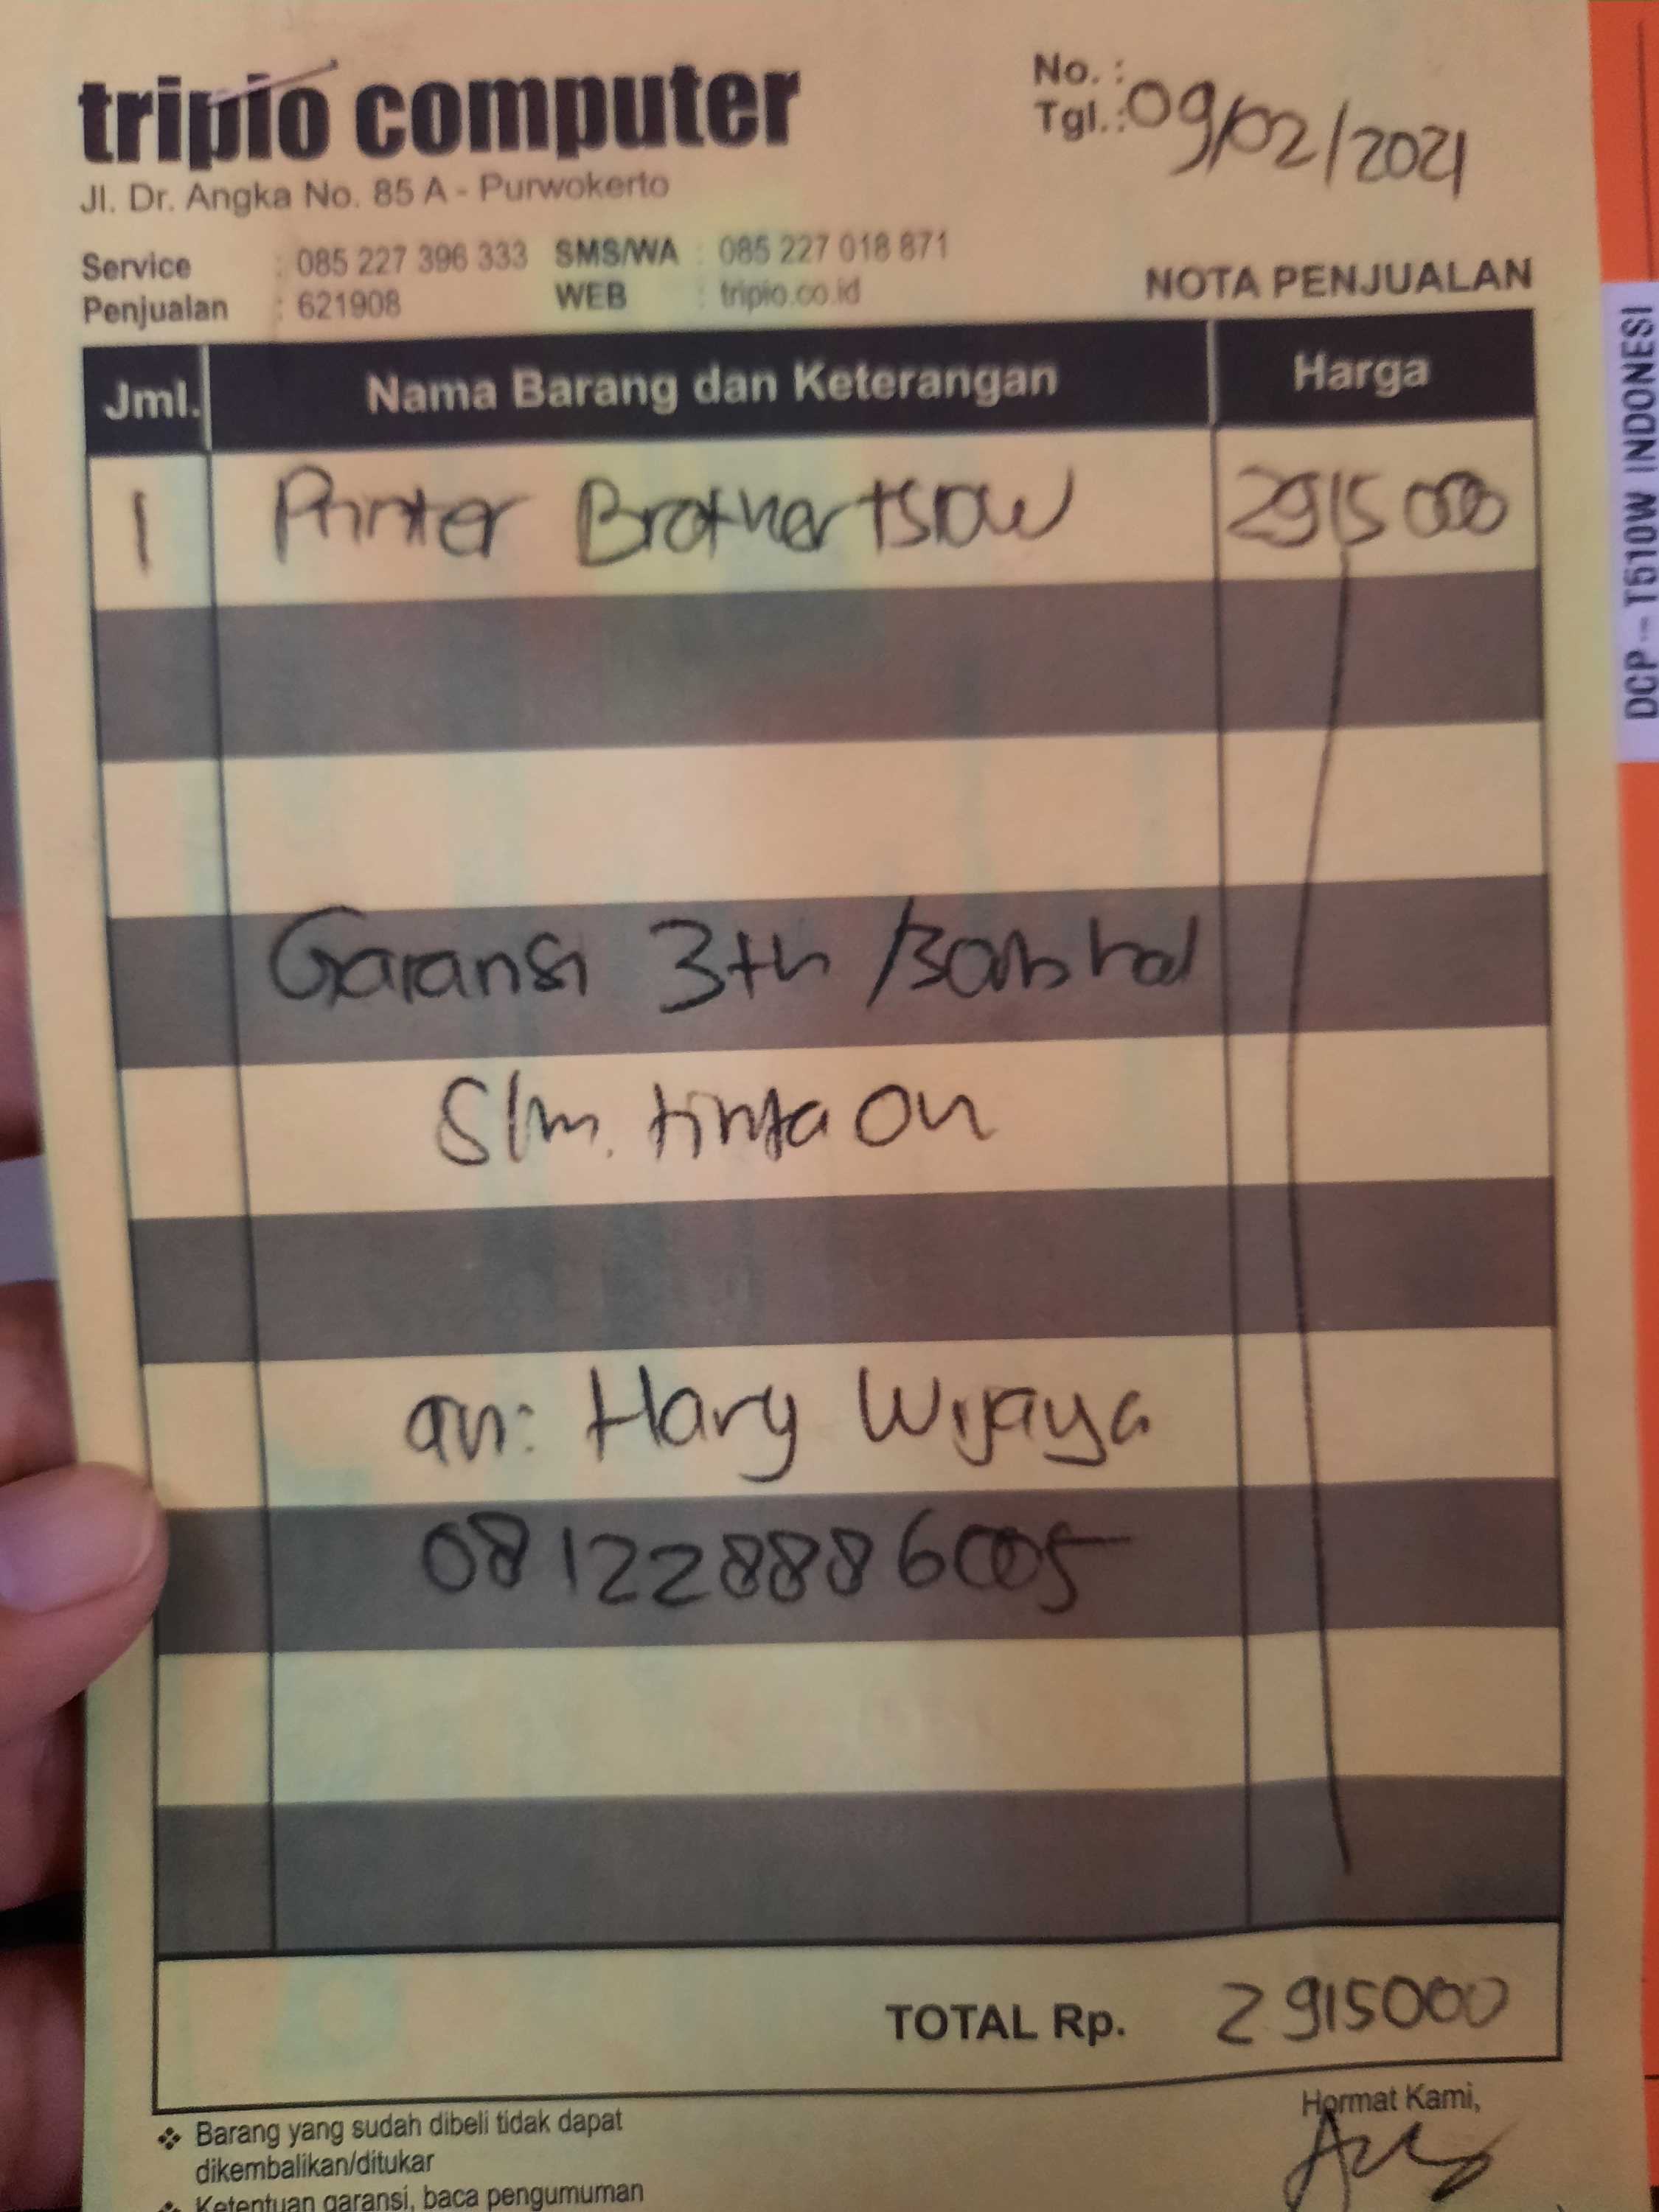 tripio computer
Jl. Dr. Angka No. 85 A - Purwokerto
No. :
Tgl. : 09/02/2021
Service : 085 227 396 333 SMS/WA : 085 227 018 871
Penjualan : 621908 WEB : tripio.co.id
NOTA PENJUALAN
Jml. Nama Barang dan Keterangan Harga
1 Printer Brother t510w 2915000
Garansi 3th /30rb hal
Slm. tinta on
an: Hary Wijaya
081228886005
TOTAL Rp. 2915000
Hormat Kami,
❖ Barang yang sudah dibeli tidak dapat
dikembalikan/ditukar
❖ Ketentuan garansi, baca pengumuman
DCP - T510W INDONESI